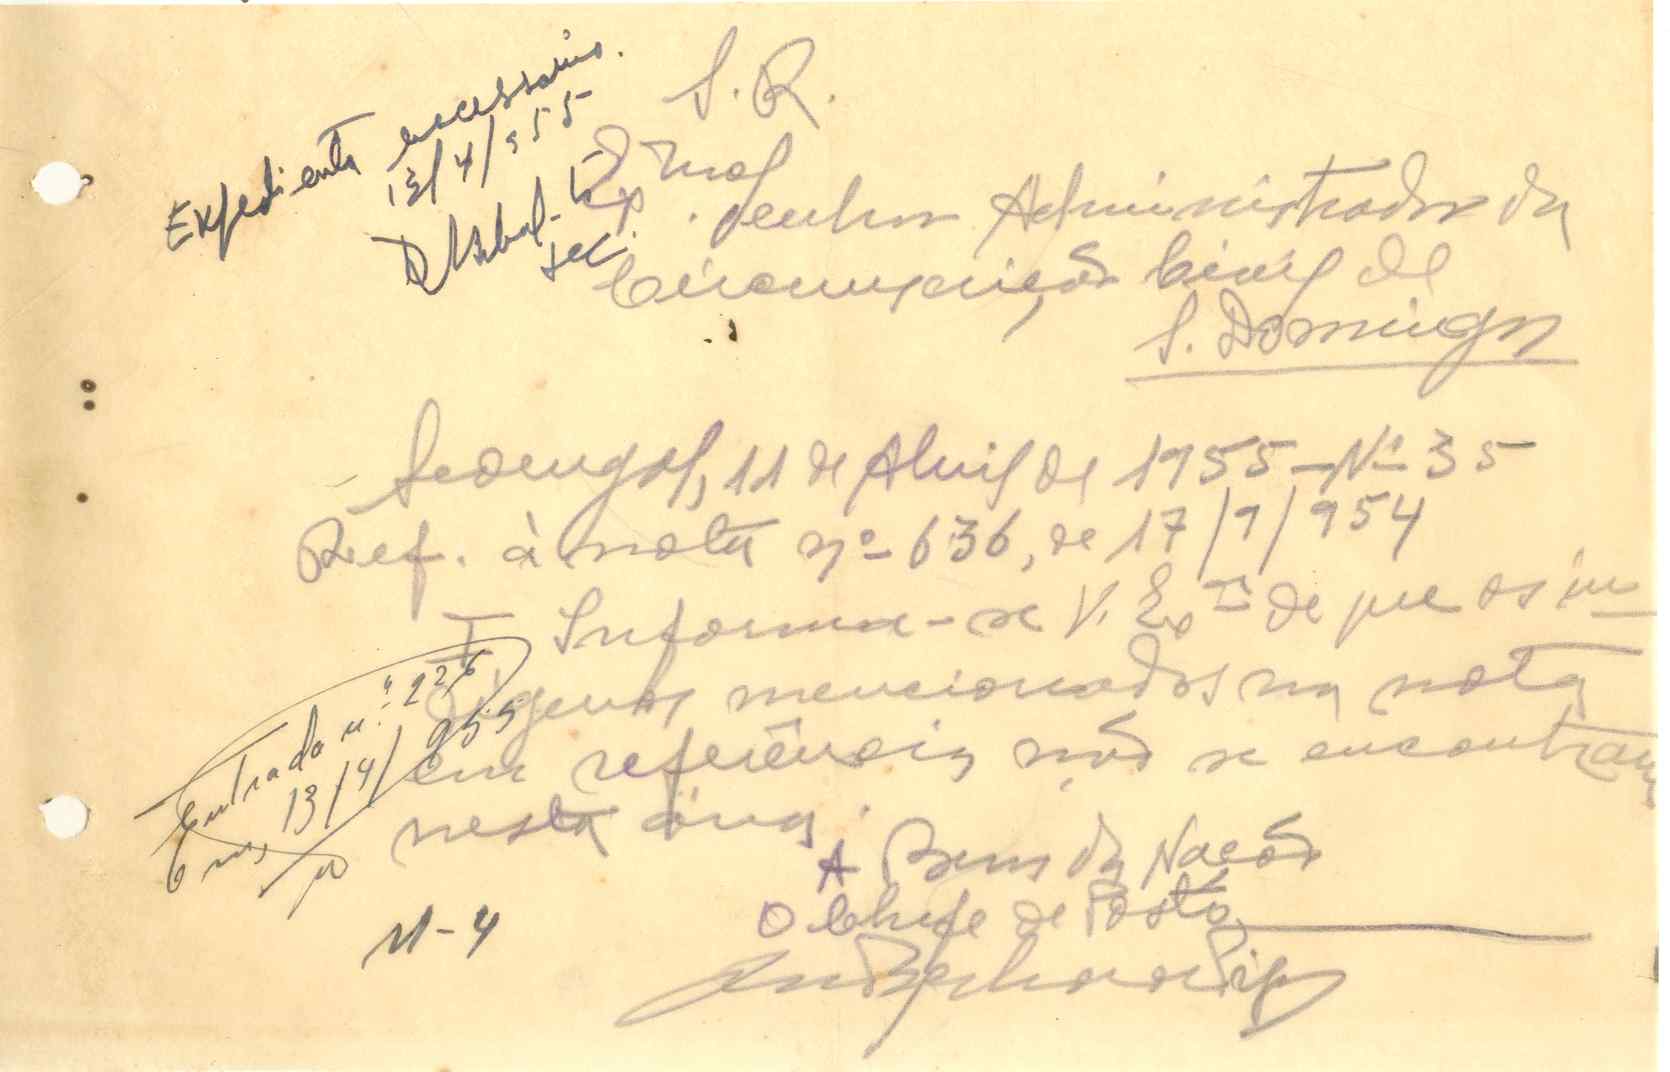 Expediente necessario.
13/4/955
S. R.
Exmo.
Senhor Administrador da
Circunscrição Civil de
S. Domingos
Sedengal, 11 de Abril de 1955 – Nº 35
Ref. à nota nº 636, de 17/9/954
I Informa-se V. Exª de que os in-
digenas mencionados na nota
em referência não se encontram
nesta área.
A Bem da Nação
O Chefe de Posto
Entrada n.º 226
Em, 13/4/955
M-4